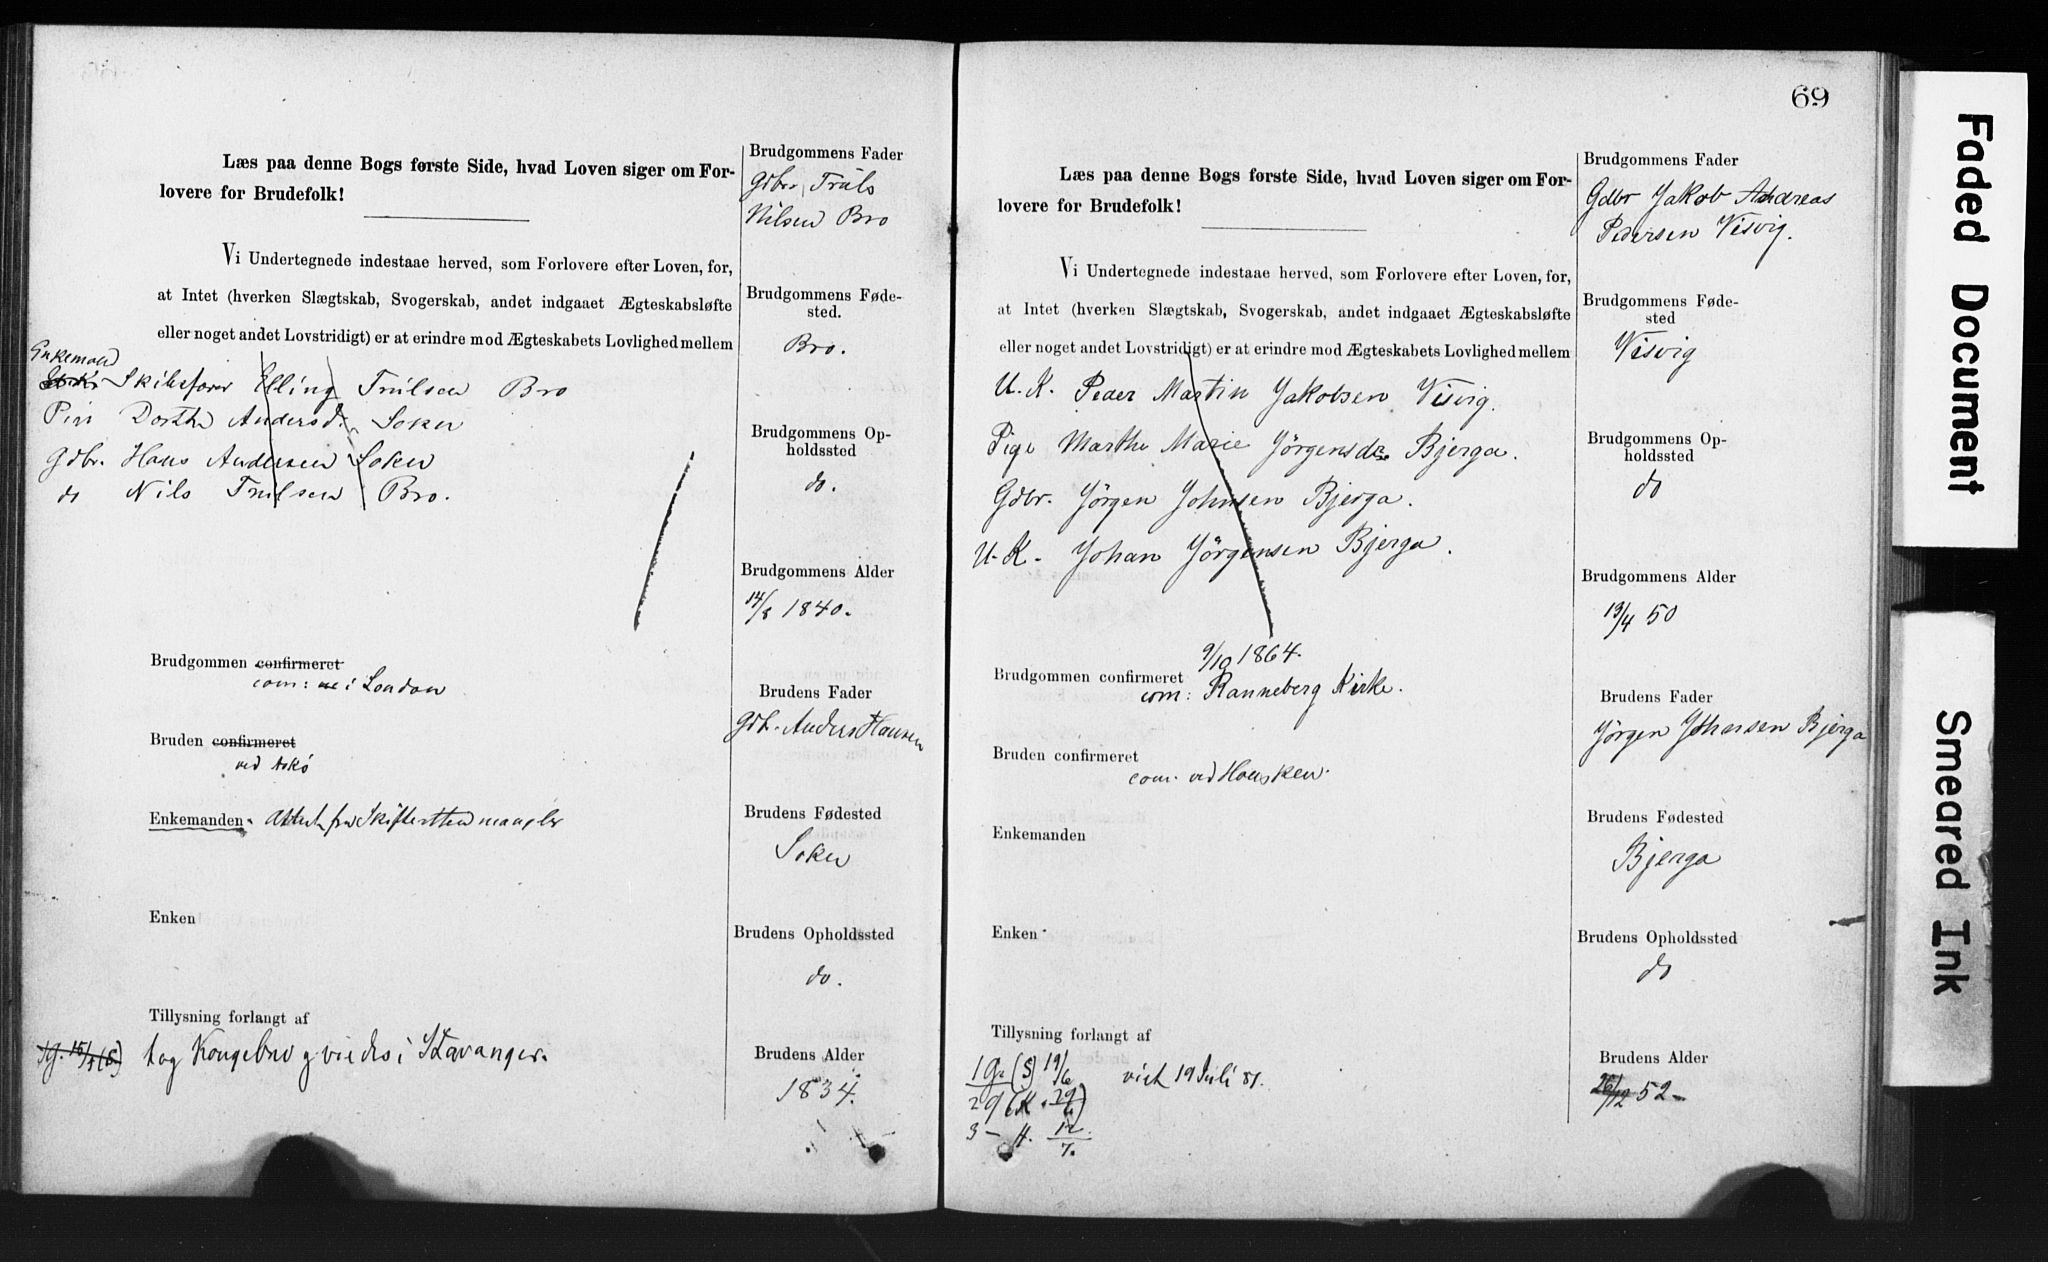 Læs paa denne Bogs første Side, hvad Loven siger om For-
lovere for Brudefolk!
Vi Undertegnede indestaae herved, som Forlovere efter Loven, for,
at Intet (hverken Slægtskab, Svogerskab, andet indgaaet Ægteskabsløfte
eller noget andet Lovstridigt) er at erindre mod Ægteskabets Lovlighed mellem
Enkemand
Skibsfører Elling Trulsen Bro
Pin Dorthe Andersd. Soken
Gdbr. Hans Andersen Soken
do Nils Trulsen Bro.
Brudgommen confirmeret
com: i London
Bruden confirmeret
ved Askø
Enkemanden. Attest fra Skifteretten mangler
Enken
Tillysning forlangt af
tog Kongebrev g viedes i Stavanger.
Brudgommens Fader
Gdbr. Truls
Nilsen Bro
Brudgommens Føde-
sted.
Bro.
Brudgommens Op-
holdssted
do.
Brudgommens Alder
14/8 1840.
Brudens Fader
Gdb. Anders Hansen
Brudens Fødested
Soken
Brudens Opholdssted
do.
Brudens Alder
1834.
69
Læs paa denne Bogs første Side, hvad Loven siger om For-
lovere for Brudefolk!
Vi Undertegnede indestaae herved, som Forlovere efter Loven, for,
at Intet (hverken Slægtskab, Svogerskab, andet indgaaet Ægteskabsløfte
eller noget andet Lovstridigt) er at erindre mod Ægteskabets Lovlighed mellem
U. K. Peder Martin Jakobsen Visvig.
Pige Marthe Marie Jørgensdr Bjerga.
Gdbr. Jørgen Johnsen Bjerga.
U. K. Johan Jørgensen Bjerga.
9/10 1864.
Brudgommen confirmeret
com: Ranneberg Kirke.
Bruden confirmeret
com. ved Hausken.
Enkemanden
Enken
Tillysning forlangt af
1 G. (S) 19/6 viet 19 Juli 81.
2 g (K. 29/6)
3 - H. 12/7.
Brudgommens Fader
Gdbr Jakob Andreas
Pedersen Visvig.
Brudgommens Føde-
sted
Visvig
Brudgommens Op-
holdssted
do
Brudgommens Alder
19/4 50
Brudens Fader
Jørgen Johnsen Bjerga
Brudens Fødested
Bjerga
Brudens Opholdssted
do
Brudens Alder
26/12 52
Faded Document
Smeared Ink